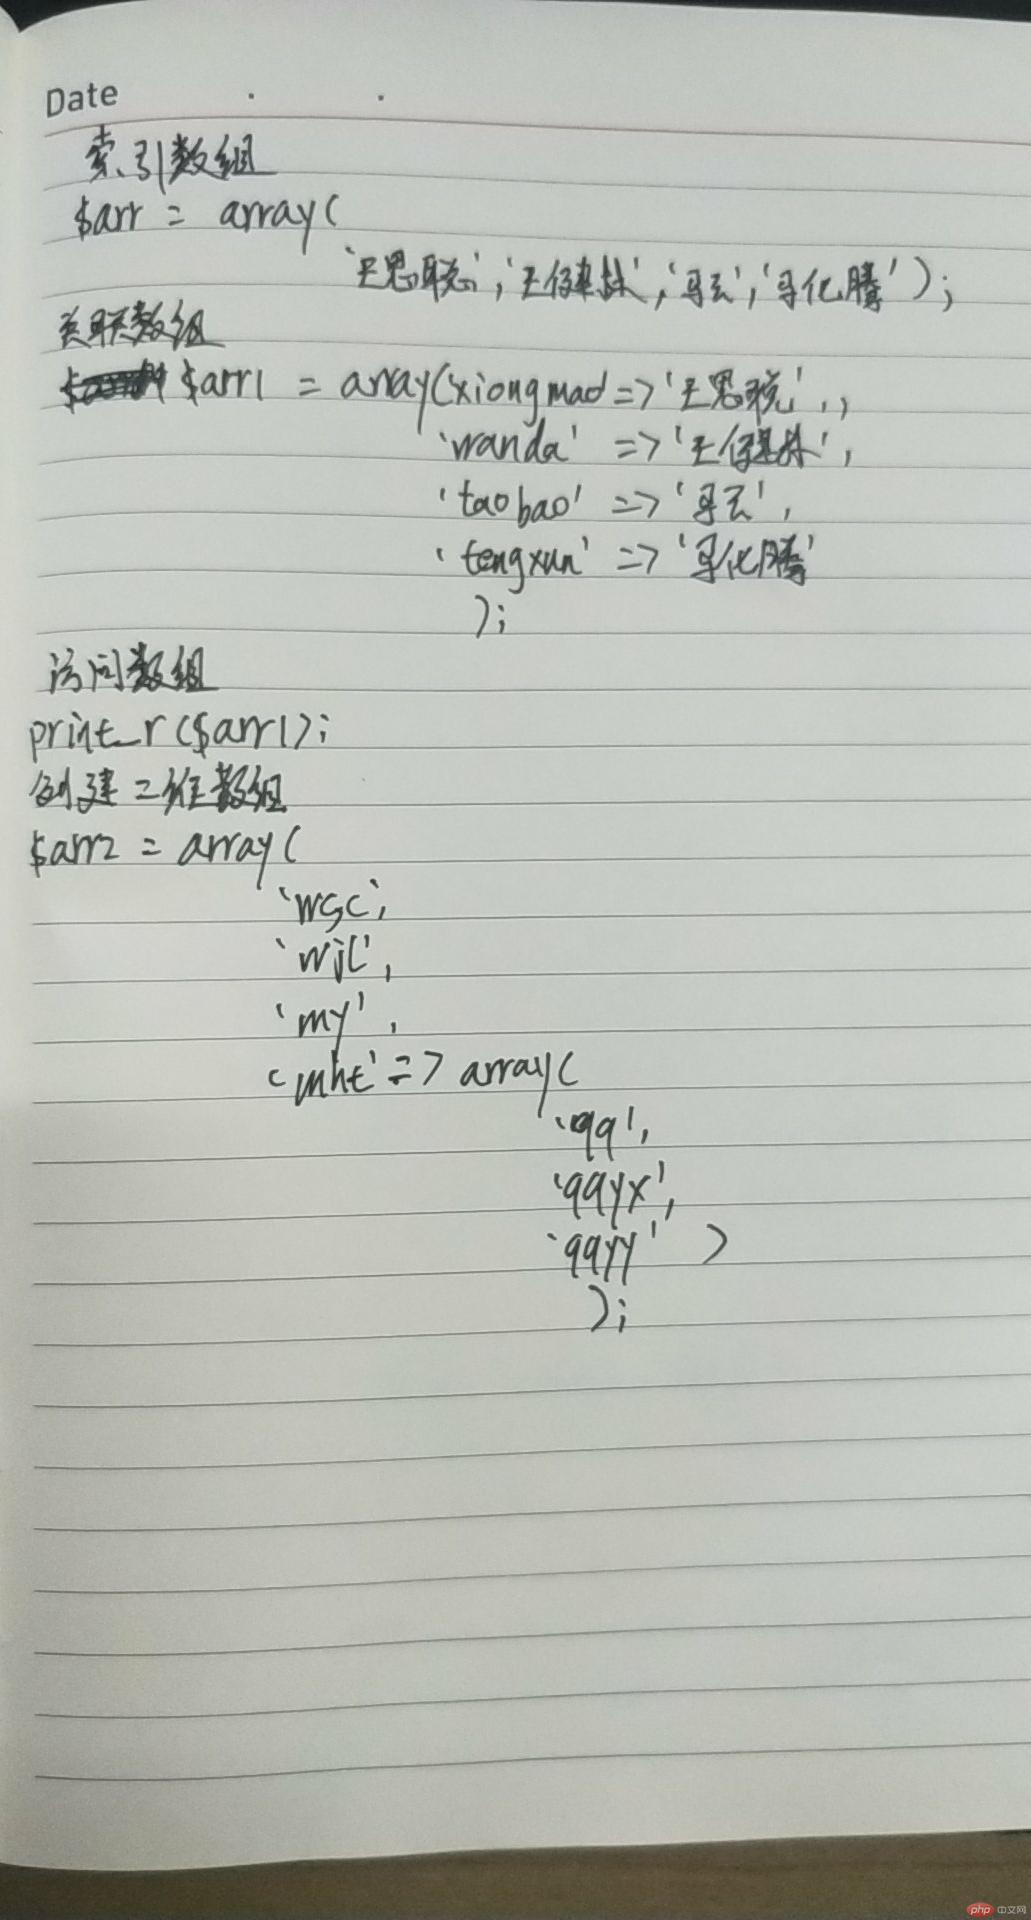 Date
索引数组
$arr = array(
'王思聪','王健林','马云','马化腾');
关联数组
$arr1 = array('xiongmao=>'王思聪',,
'wanda' =>'王健林',
'taobao' =>'马云',
'tengxun' =>'马化腾'
);
访问数组
print_r($arr1);
创建二维数组
$arr2 = array(
'wsc',
'wjl',
'my',
'mht'=> array(
'qq',
'qqyx',
'qqyy' )
);
php 中文网